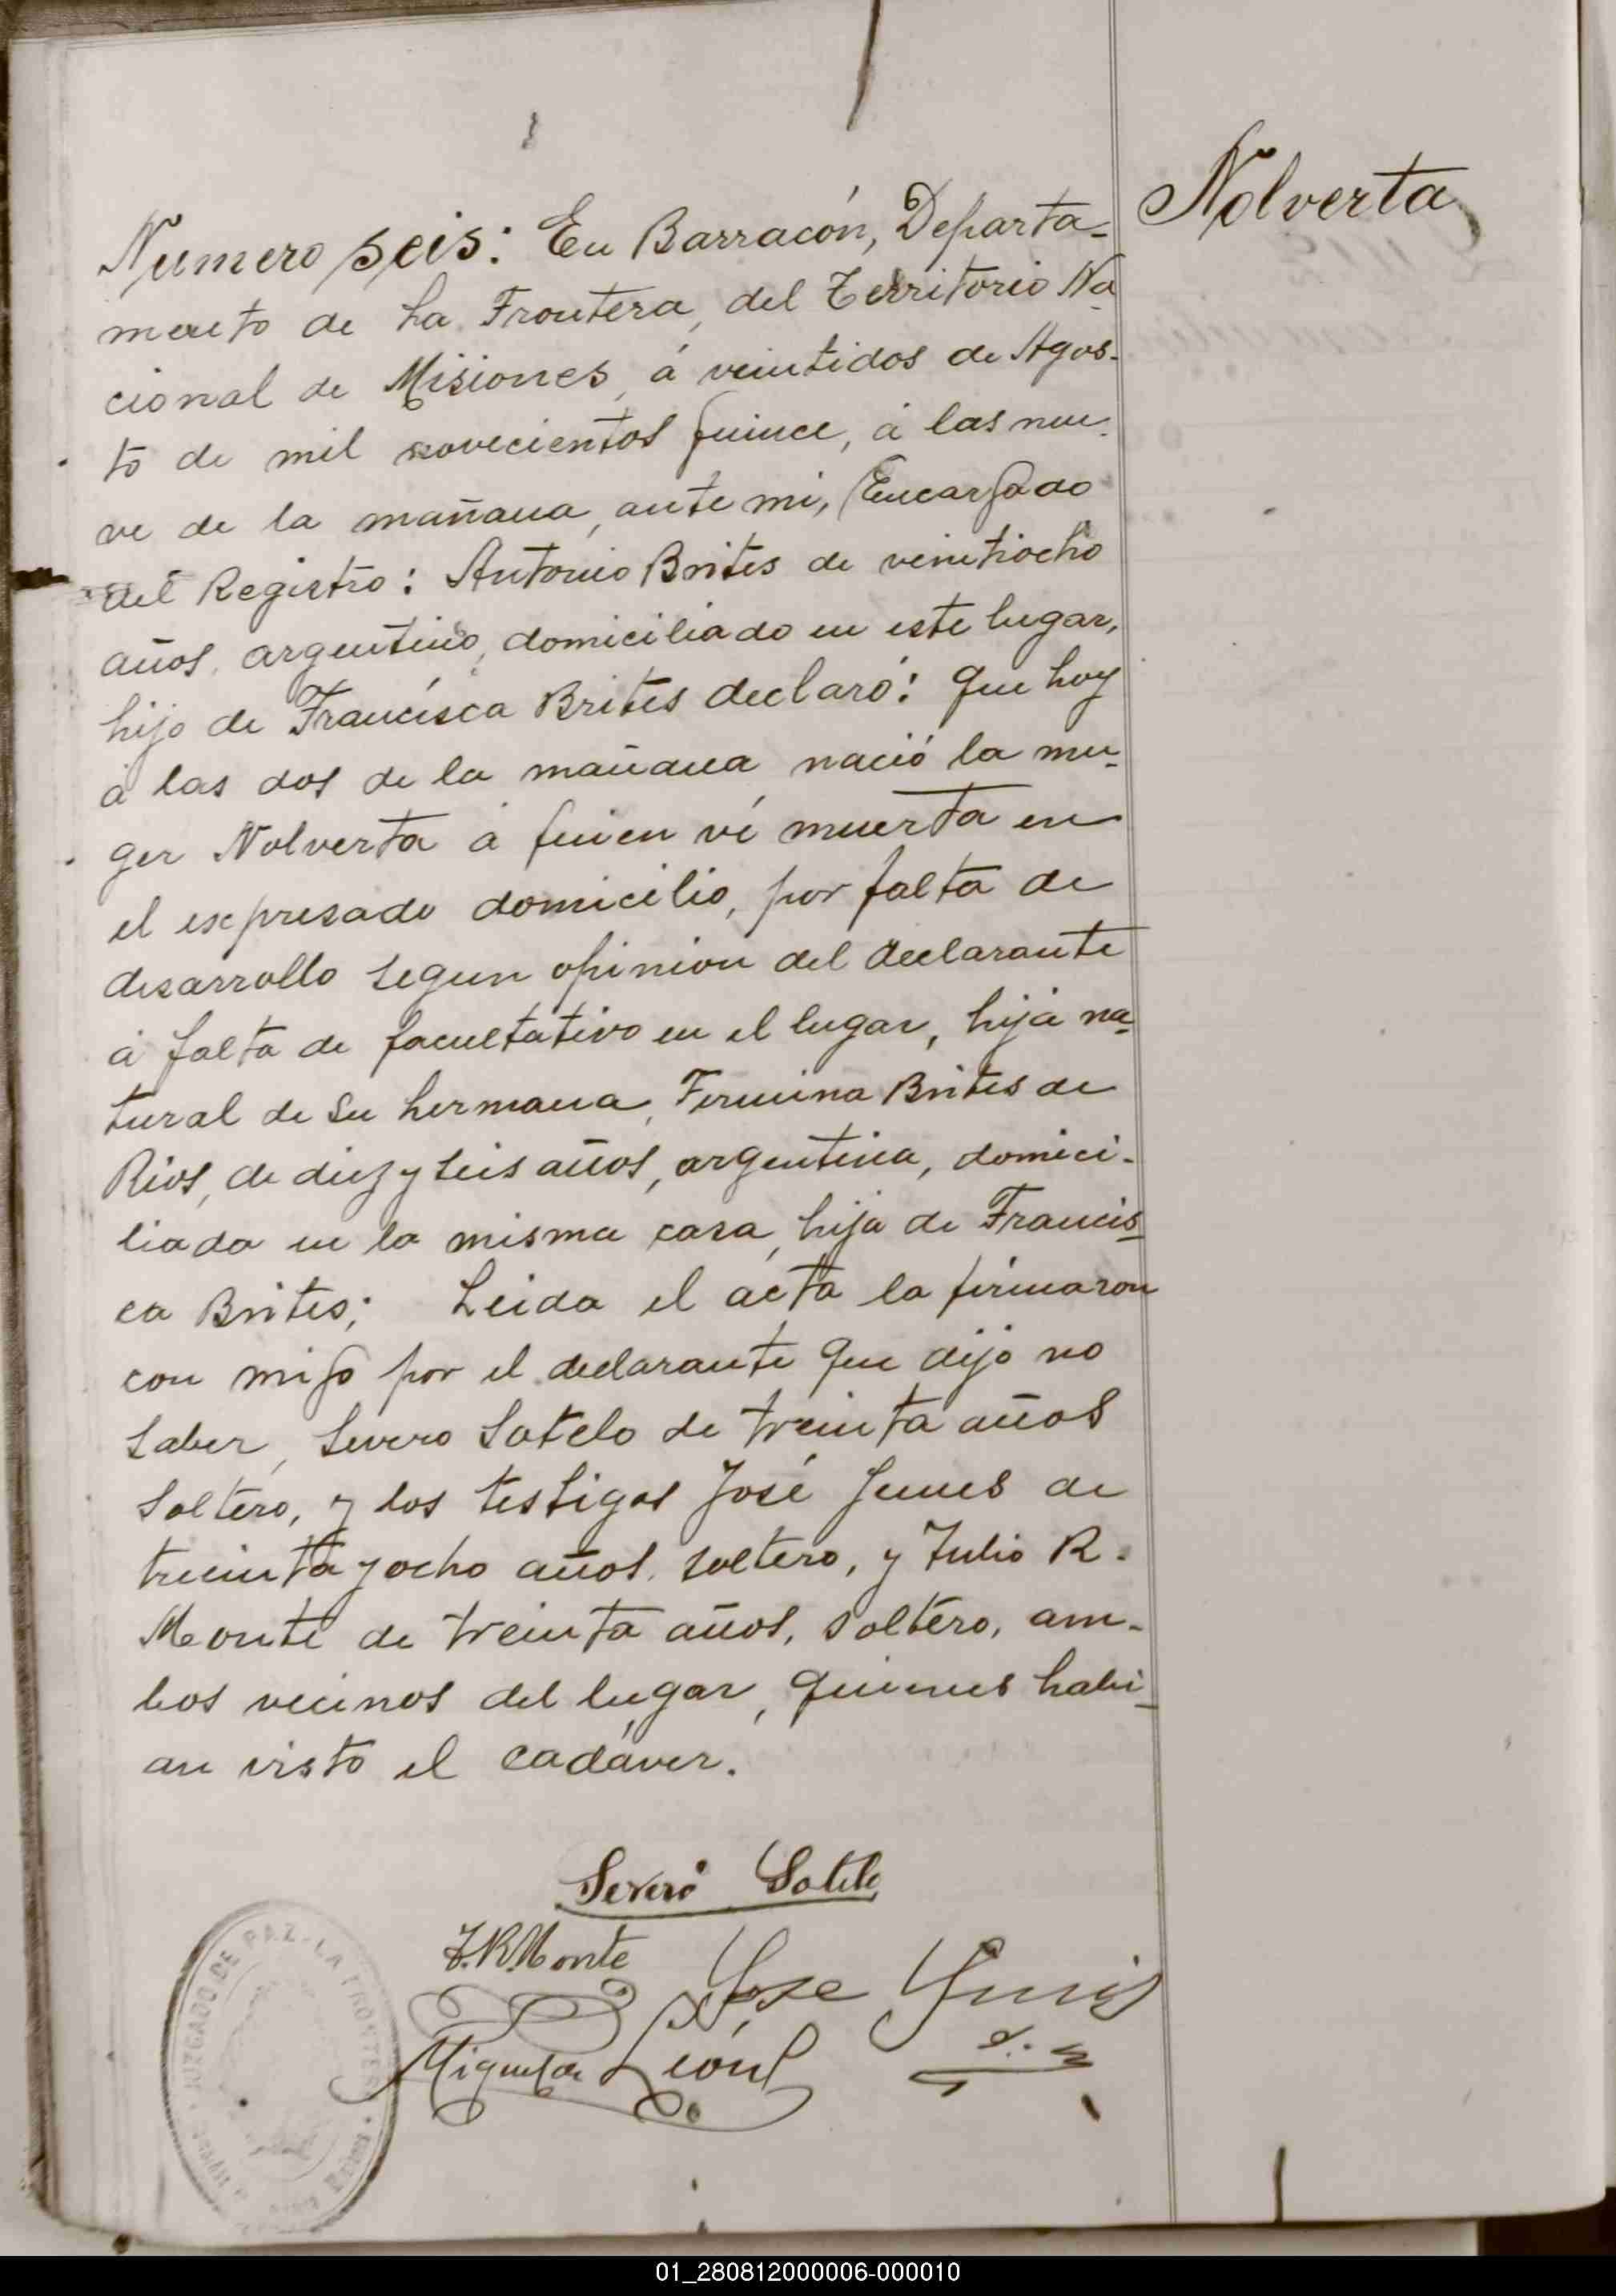 Nolverta
Numero seis: En Barracón, Departa-
mento de La Frontera, del Territorio Na
cional de Misiones, á veintidos de Agos-
to de mil novecientos quince, á las nue-
ve de la mañana, ante mi, Encargado
del Registro: Antonio Brites de veintiocho
años, argentino, domiciliado en este lugar,
hijo de Francisca Brites declaró: Que hoy
á las dos de la mañana nació la mu-
ger Nolverta á quien ví muerta en
el expresado domicilio, por falta de
desarrollo segun opinion del declarante
á falta de facultativo en el lugar, hija na-
tural de su hermana, Fermina Brites de
Rios, de diez y seis años, argentina, domici-
liada en la misma casa, hija de Francis-
ca Brites; Leida el acta la firmaron
con migo por el declarante que dijo no
saber, Severo Sotelo de treinta años
soltero, y los testigos José de
treinta y ocho años, soltero, y Julio R.
Monte de treinta años, soltero, am-
bos vecinos del lugar, quienes habi-
an visto el cadáver.
Severo Sotelo
J.R. Monte
Jose
Miguel de León
JUZGADO DE PAZ - LA FRONTERA
01_280812000006-000010